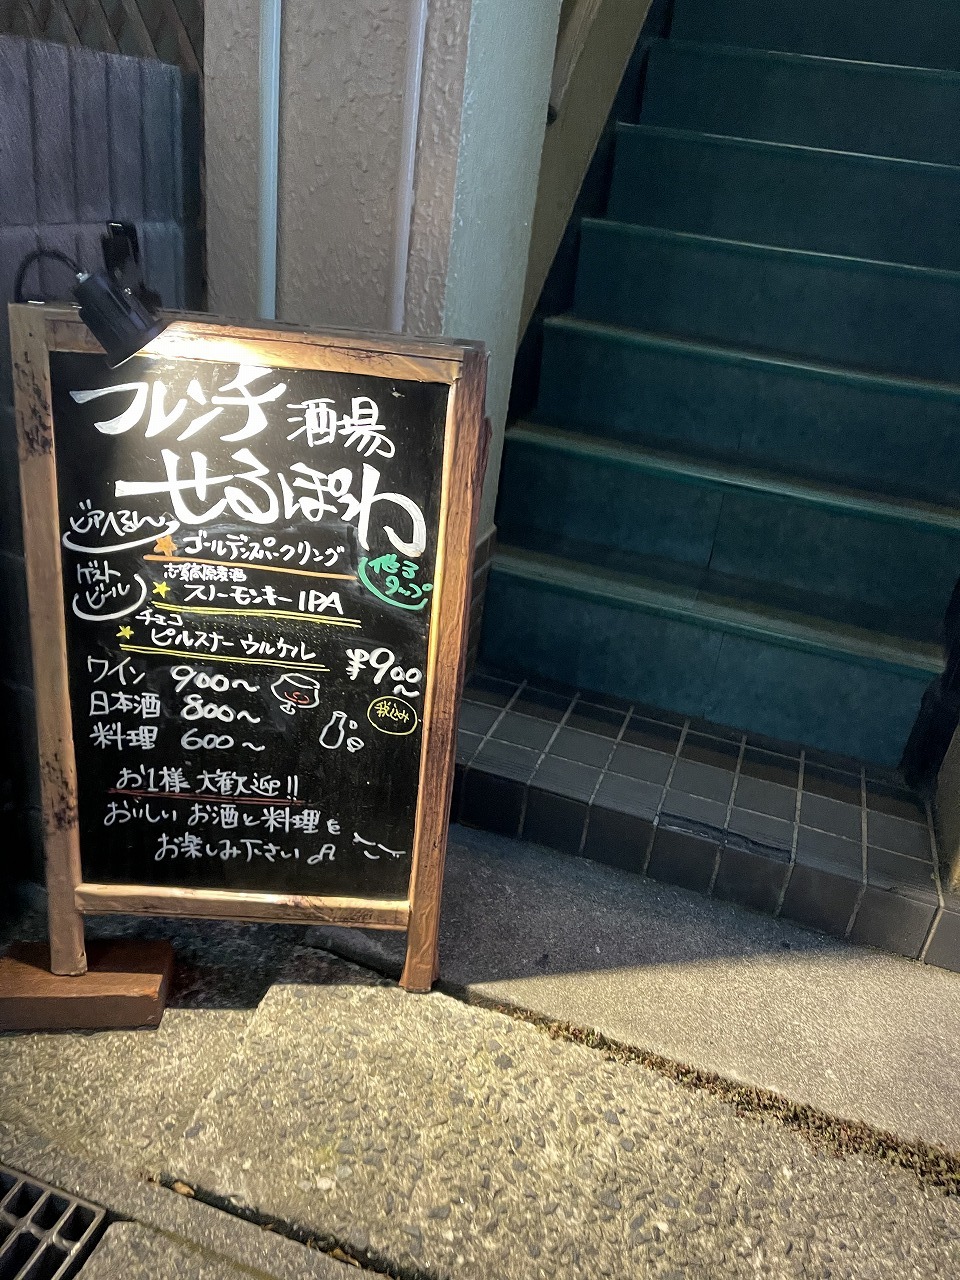 フレンチ酒場
せるぽわ
ビアへるん
ゴールデンスパークリング
ゲスト
ビール
志賀高原麦酒
スノーモンキーIPA
チェコ
ピルスナーウルケル
¥900〜
税込み
ワイン 900〜
日本酒 800〜
料理 600〜
お1様 大歓迎!!
おいしいお酒と料理を
お楽しみ下さい♫